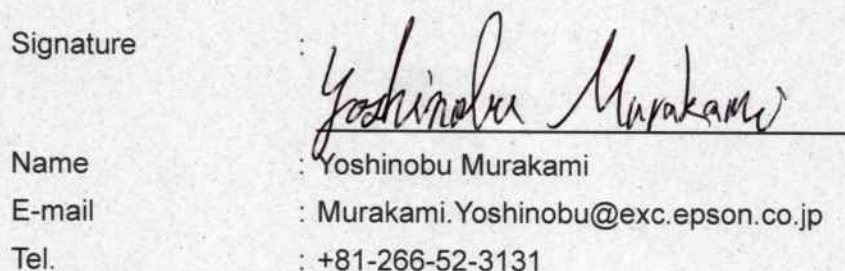 Signature : Yoshinobu Murakami
Name : Yoshinobu Murakami
E-mail : Murakami.Yoshinobu@exc.epson.co.jp
Tel. : +81-266-52-3131